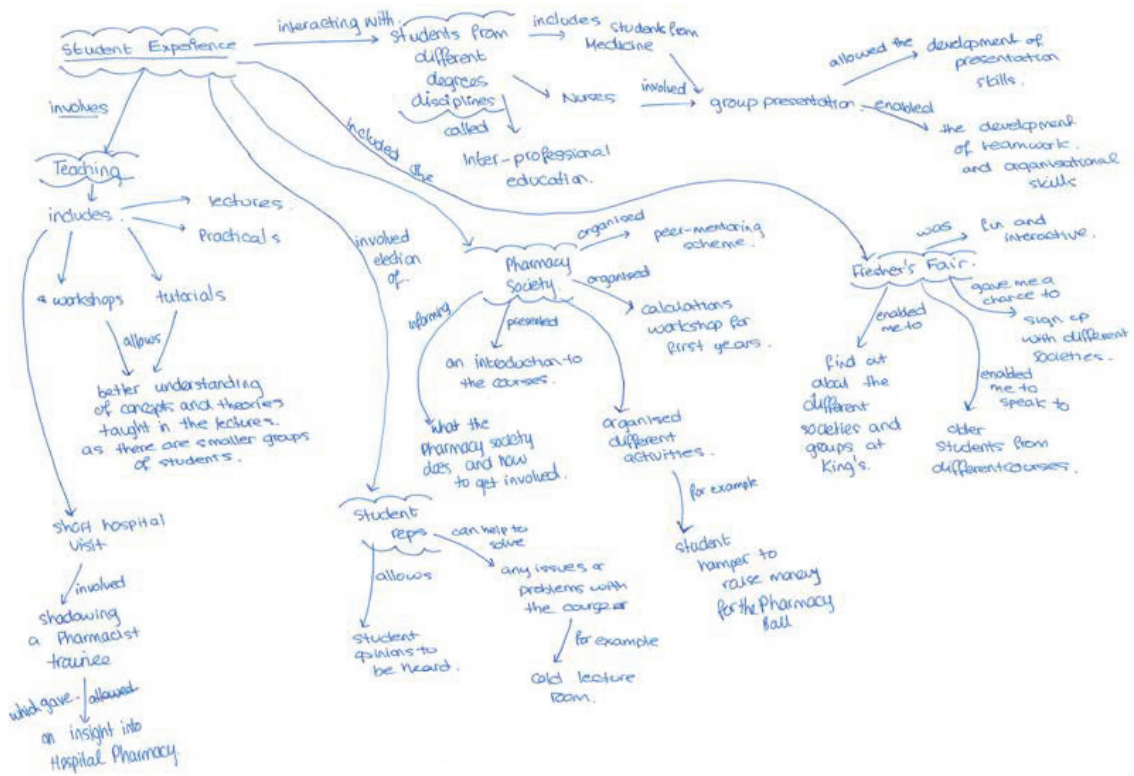 Student Experience
interacting with
students from
different
degrees
disciplines
called
Inter-professional
education.
includes
students from
Medicine
Nurses
involved
group presentation.
allowed the
development of
presentation
skills.
enabled
the development
of teamwork.
and organisational
skills
involves
Teaching
includes.
lectures.
Practicals
workshops
tutorials
allows
better understanding
of concepts and theories
taught in the lectures.
as there are smaller groups
of students.
short hospital
visit
involved
shadowing
a Pharmacist
trainee
which gave.
allowed
an insight into
Hospital Pharmacy.
involved
election
of
Student
reps
allows
student
opinions to
be heard.
can help to
solve
any issues or
problems with
the course
for example
cold lecture
room.
Pharmacy
Society.
organised
peer-mentoring
scheme.
organised
calculations
workshop for
first years.
informing
what the
Pharmacy society
does, and how
to get involved.
presented
an introduction to
the courses.
organised
different
activities.
for example
student
hamper to
raise money
for the Pharmacy
Ball
included
the
Fresher's Fair.
was
fun and
interactive.
gave me a
chance to
sign up
with different
societies.
enabled
me to
find out
about the
different
societies and
groups at
King's.
enabled
me to
speak to
older
students from
different courses.